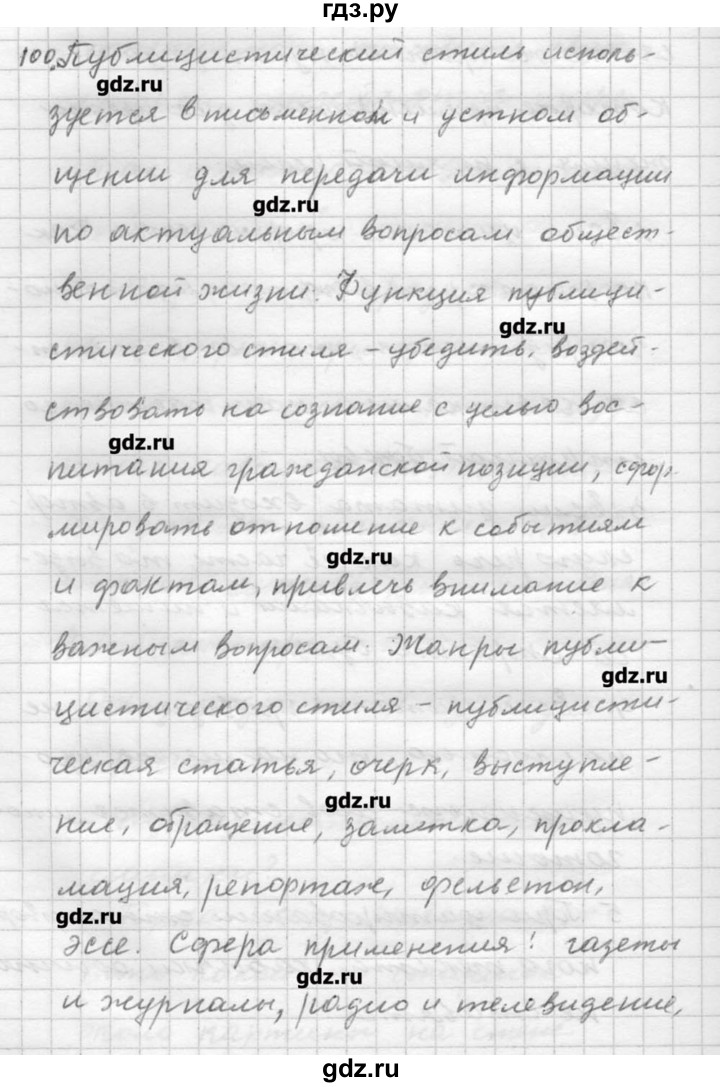 гдз.ру
100. Публицистический стиль исполь-
gdz.ru
зуется в письменном и устном об-
щении для передачи информации
gdz.ru
по актуальным вопросам общест-
венной жизни. Функция публици-
gdz.ru
стического стиля – убедить, воздей-
ствовать на сознание с целью вос-
gdz.ru
питания гражданской позиции, сфор-
мировать отношение к событиям
gdz.ru
и фактам, привлечь внимание к
важным вопросам. Жанры публи-
gdz.ru
цистического стиля – публицисти-
ческая статья, очерк, выступле-
gdz.ru
ние, обращение, заметка, прокла-
мация, репортаж, фельетон,
gdz.ru
эссе. Сфера применения: газеты
gdz.ru
и журналы, радио и телевидение,
gdz.ru